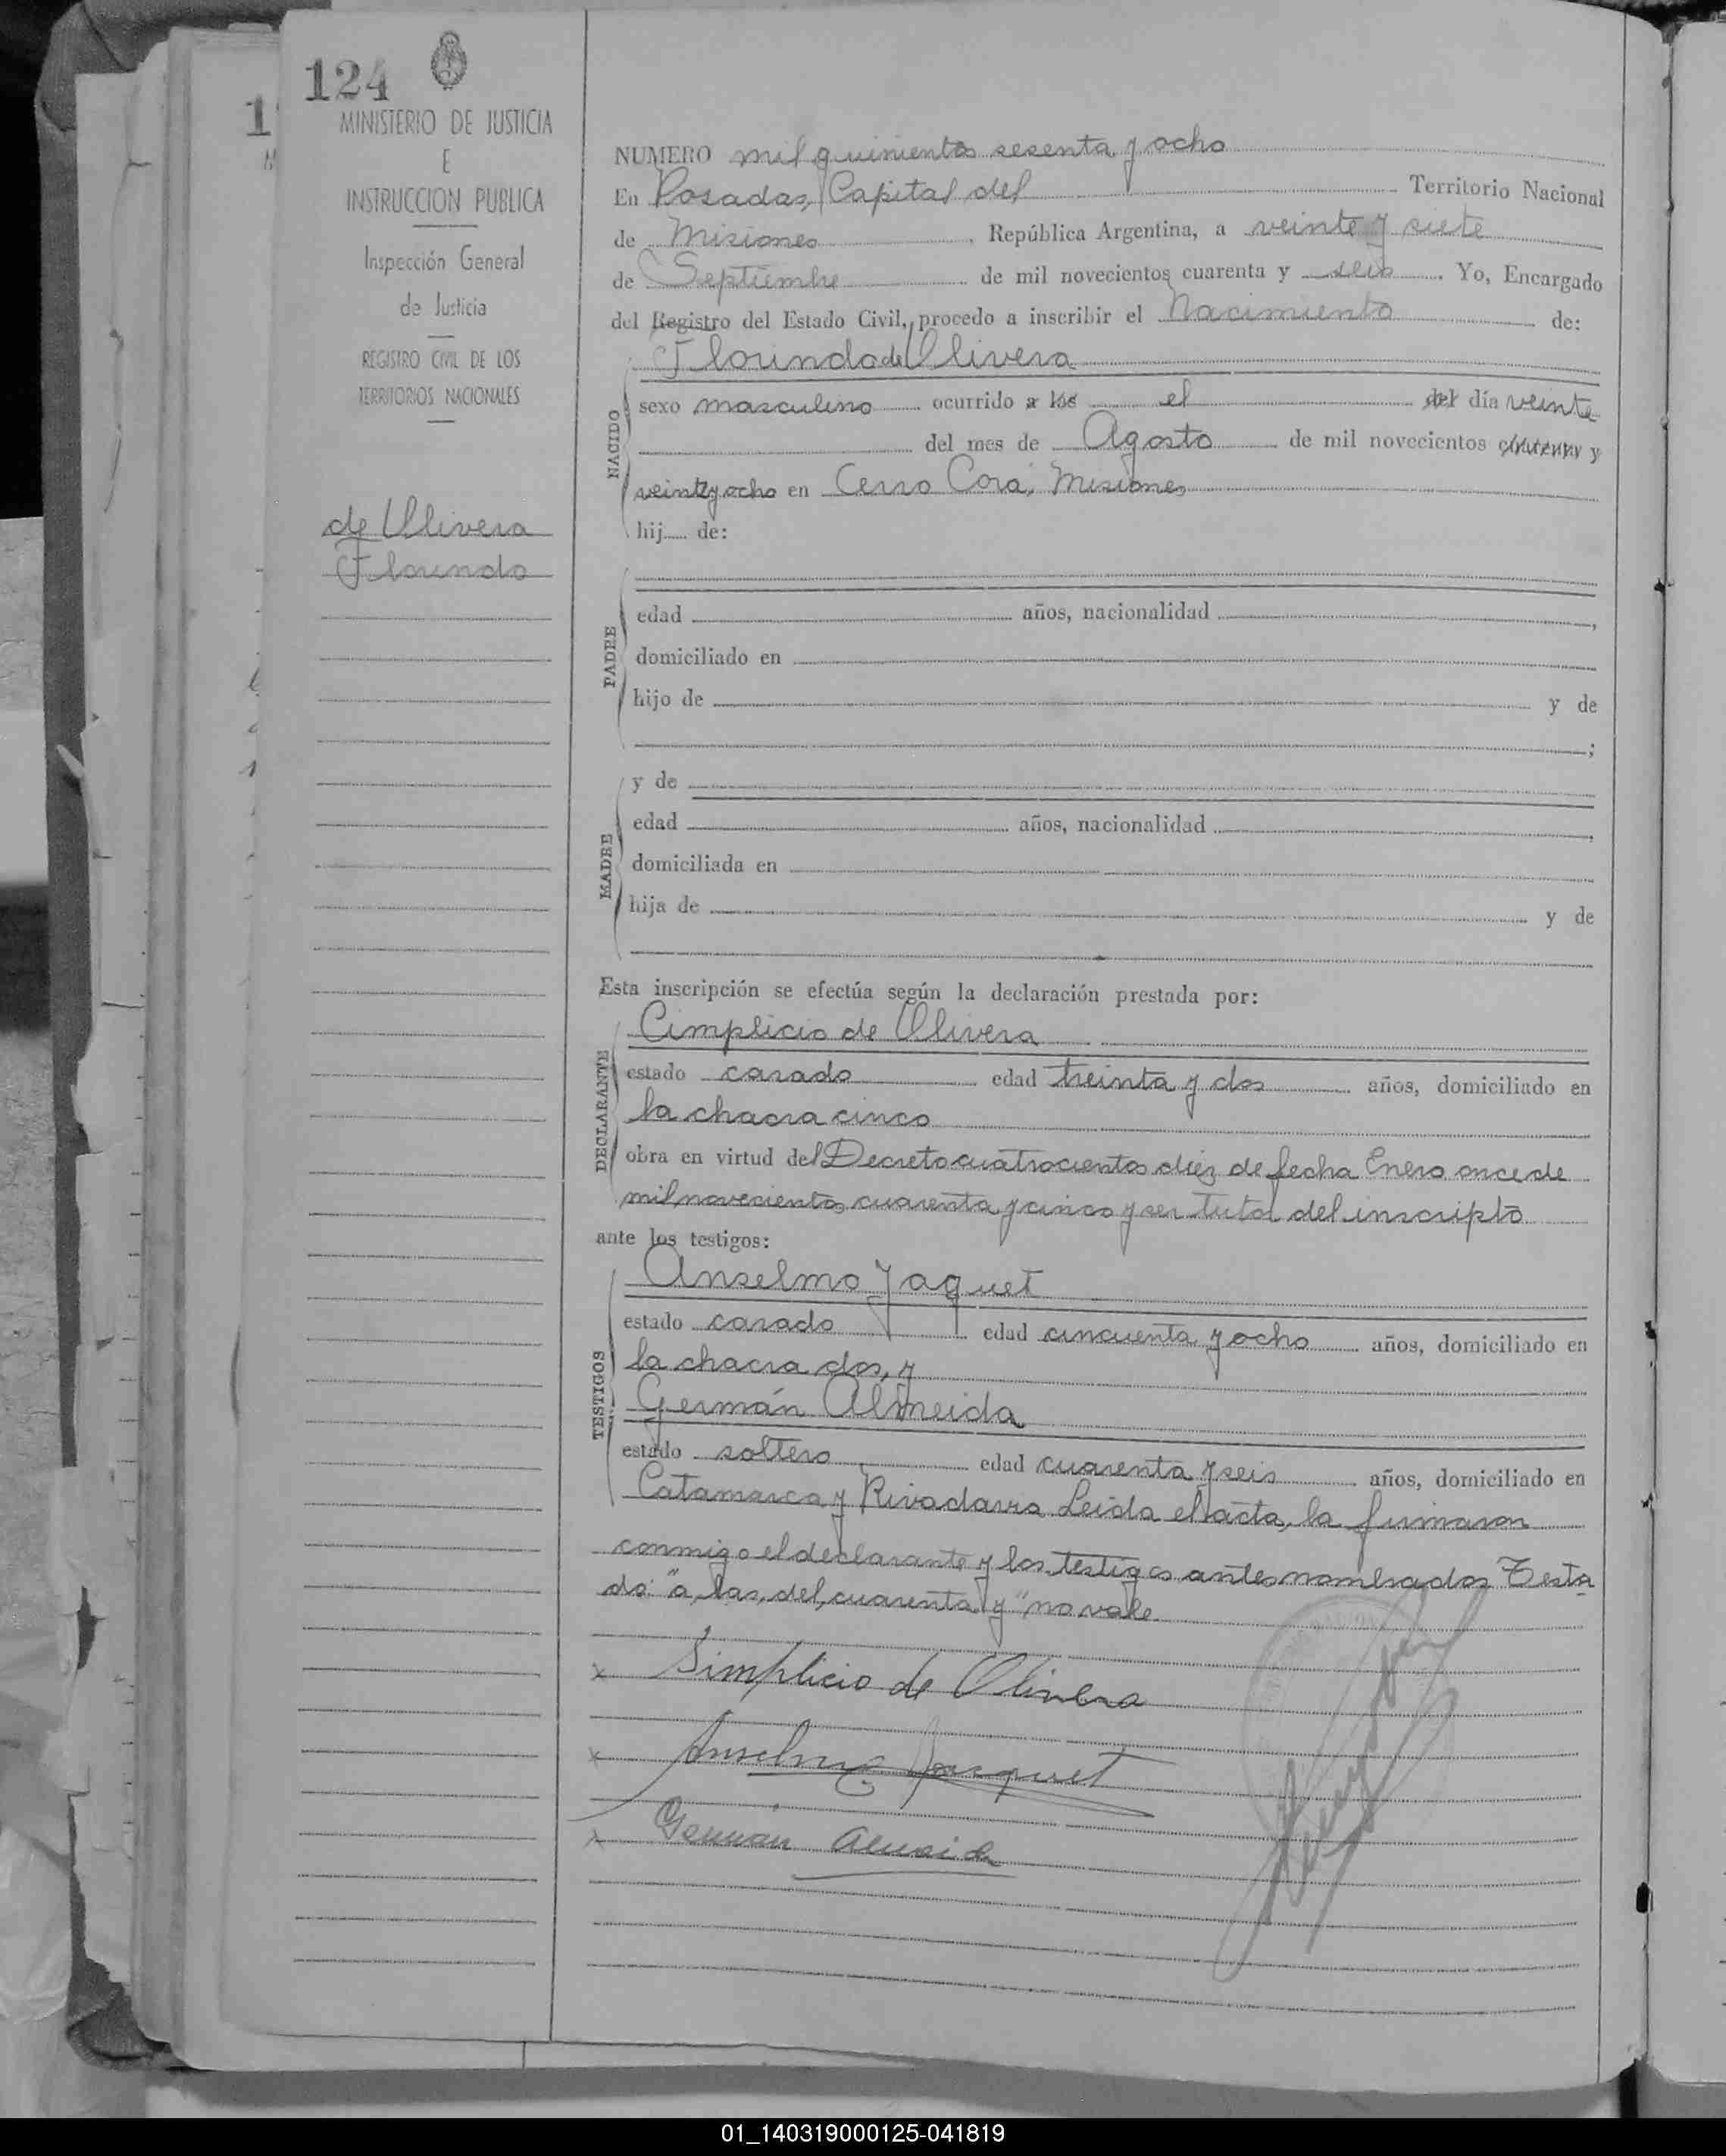 124
MINISTERIO DE JUSTICIA
E
INSTRUCCION PUBLICA
Inspección General
de Justicia
REGISTRO CIVIL DE LOS
TERRITORIOS NACIONALES
de Olivera
Florindo
NUMERO mil quinientos sesenta y ocho
En Posadas, Capital del Territorio Nacional
de Misiones, República Argentina, a veinte y siete
de Septiembre de mil novecientos cuarenta y seis. Yo, Encargado
del Registro del Estado Civil, procedo a inscribir el Nacimiento de:
Florindo de Olivera
NACIDO
sexo masculino ocurrido a las el del día veinte
del mes de Agosto de mil novecientos cuarenta y
veinte y ocho en Cerro Corá, Misiones
hij de:
PADRE
edad años, nacionalidad ,
domiciliado en
hijo de y de
;
MADRE
y de
edad años, nacionalidad ,
domiciliada en
hija de y de
Esta inscripción se efectúa según la declaración prestada por:
DECLARANTE
Cimplicio de Olivera
estado casado edad treinta y dos años, domiciliado en
la chacra cinco
obra en virtud del Decreto cuatrocientos diez de fecha Enero once de
mil novecientos cuarenta y cinco y ser tutor del inscripto
ante los testigos:
TESTIGOS
Anselmo Jaquet
estado casado edad cincuenta y ocho años, domiciliado en
la chacra dos, y
Germán Almeida
estado soltero edad cuarenta y seis años, domiciliado en
Catamarca y Rivadavia Leida el acta, la firmaron
conmigo el declarante y los testigos antes nombrados Testa
do: "a, las, del, cuarenta y" no vale.
x Simplicio de Olivera
x Anselmo Jacquet
x Germán Almeida
01_140319000125-041819